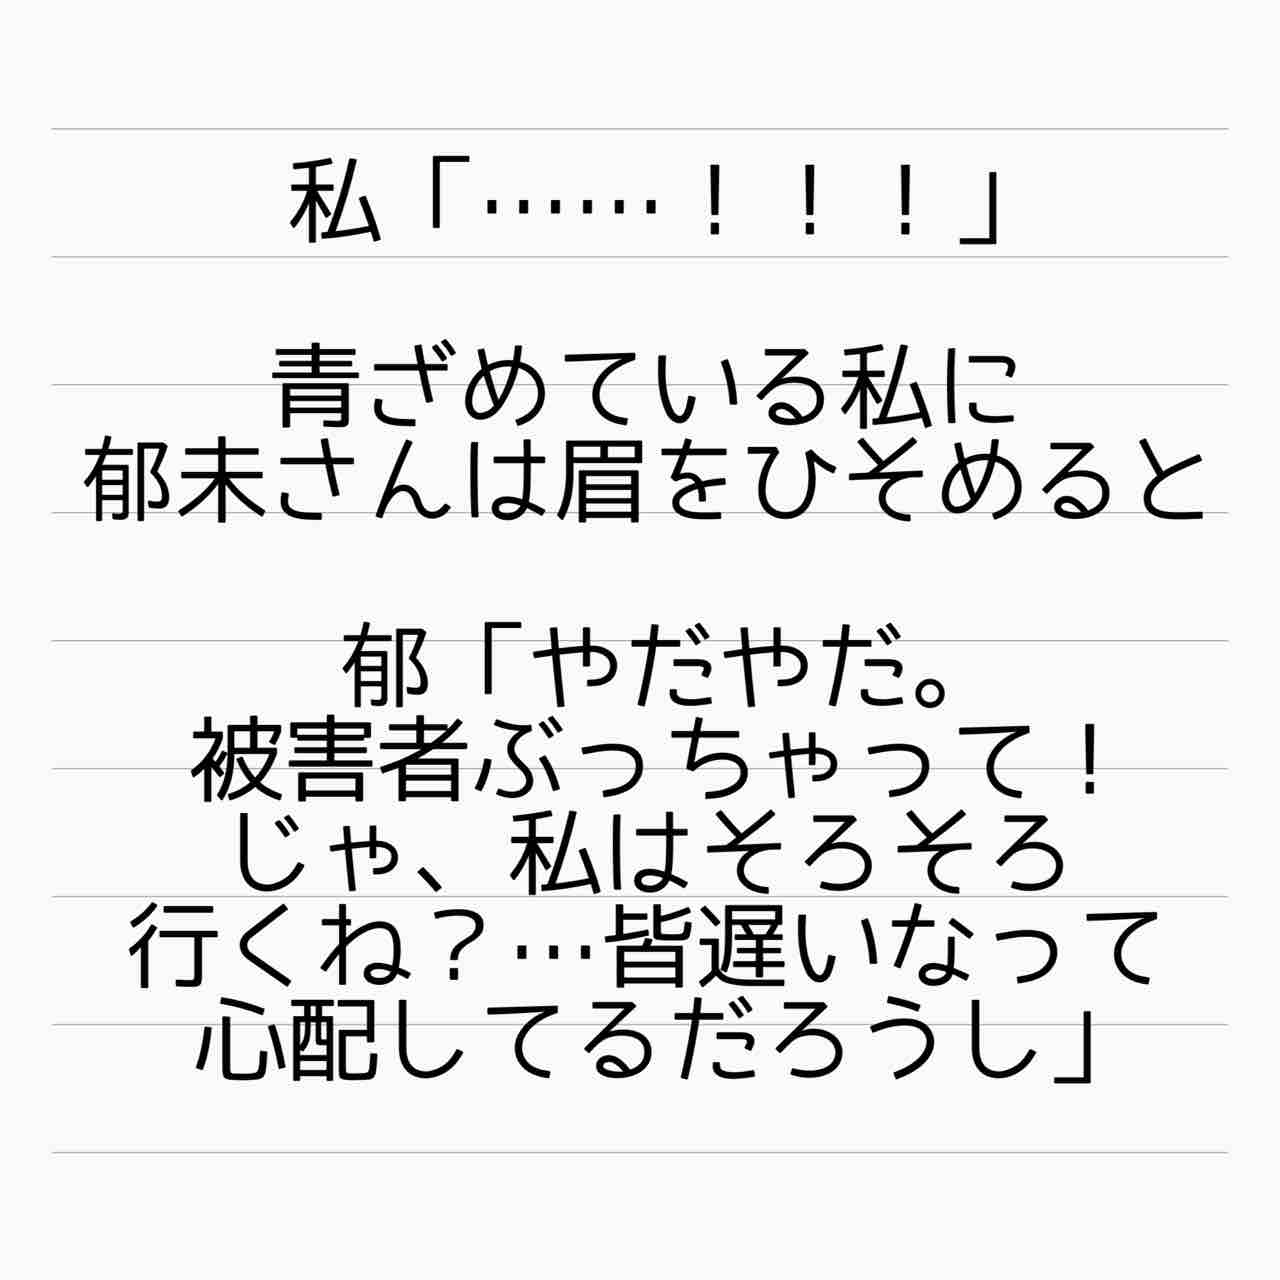 私「……！！！」
青ざめている私に
郁未さんは眉をひそめると
郁「やだやだ。
被害者ぶっちゃって！
じゃ、私はそろそろ
行くね？…皆遅いなって
心配してるだろうし」